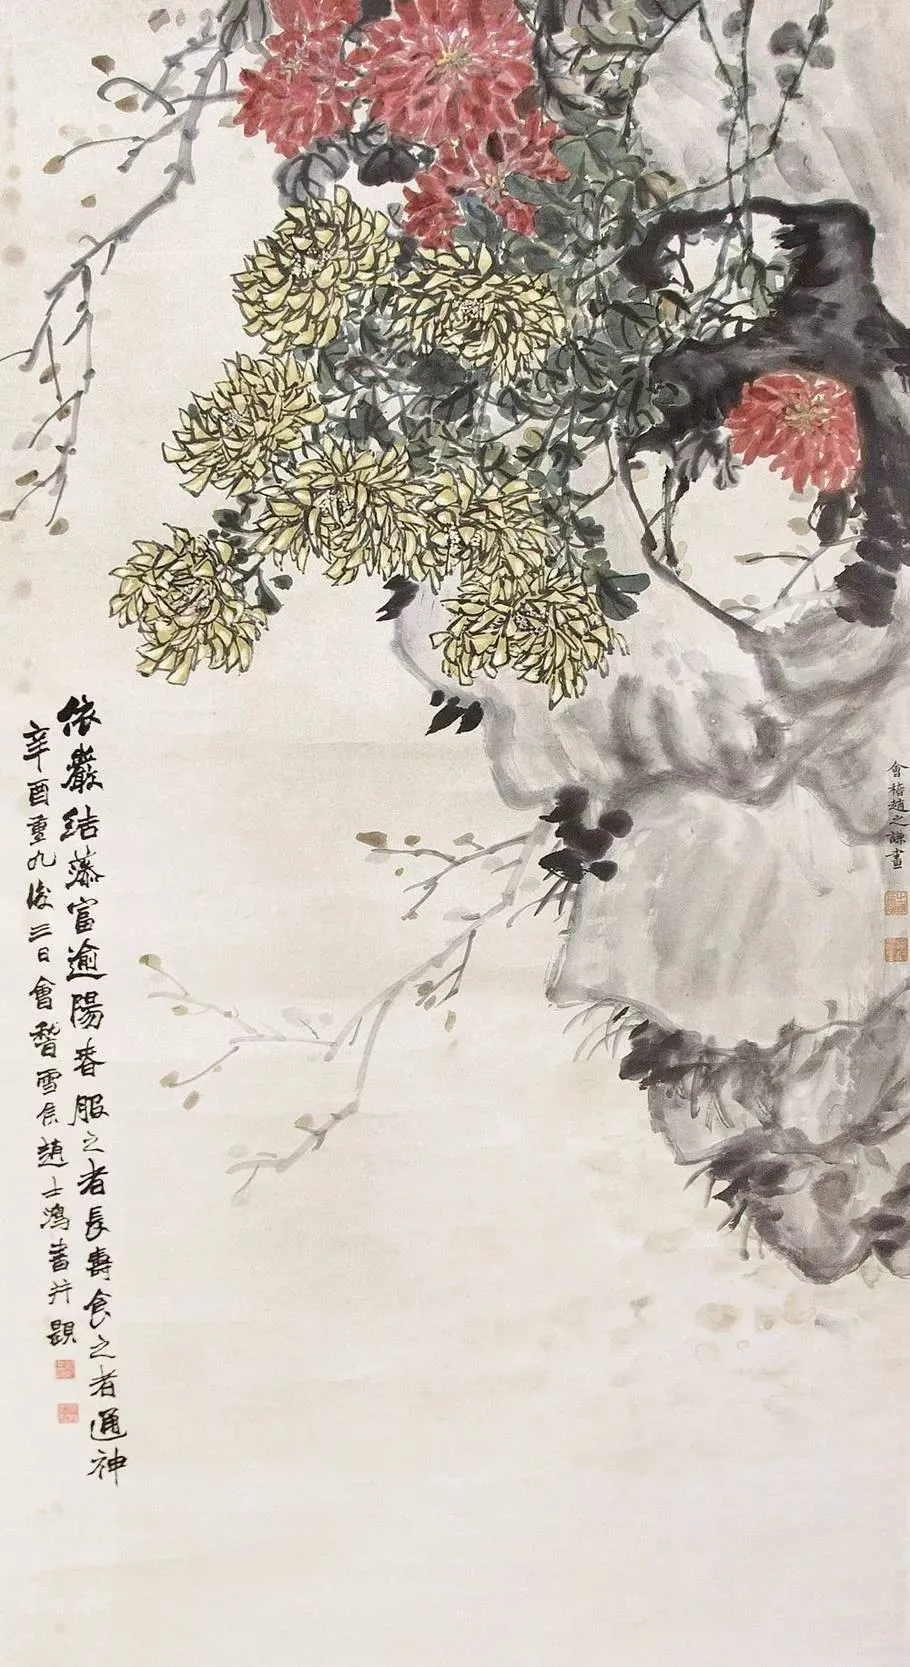 會稽趙之謙畫
依巖結蕊富逾陽春服之者長壽食之者通神
辛酉重九後三日會稽雪侶趙士鴻書并題